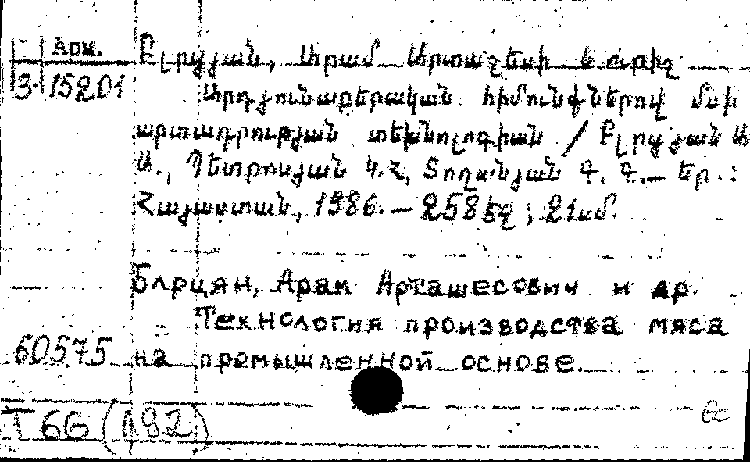 Арм. Բլրցյան, Արամ Արտաշեսի և ուրիշ
3-15201 Արդյունաբերական հիմունքներով մսի
արտադրության տեխնոլոգիան / Բլրցյան Ա.
Ա., Պետրոսյան Կ.Հ, Տողանյան Գ. Գ.— Եր. :
Հայաստան, 1986.— 258 էջ ; 21 սմ.
Блрцян, Арам Арташесович и др.
Технология производства мяса
60575 на промышленной основе.
Т 66 (192)